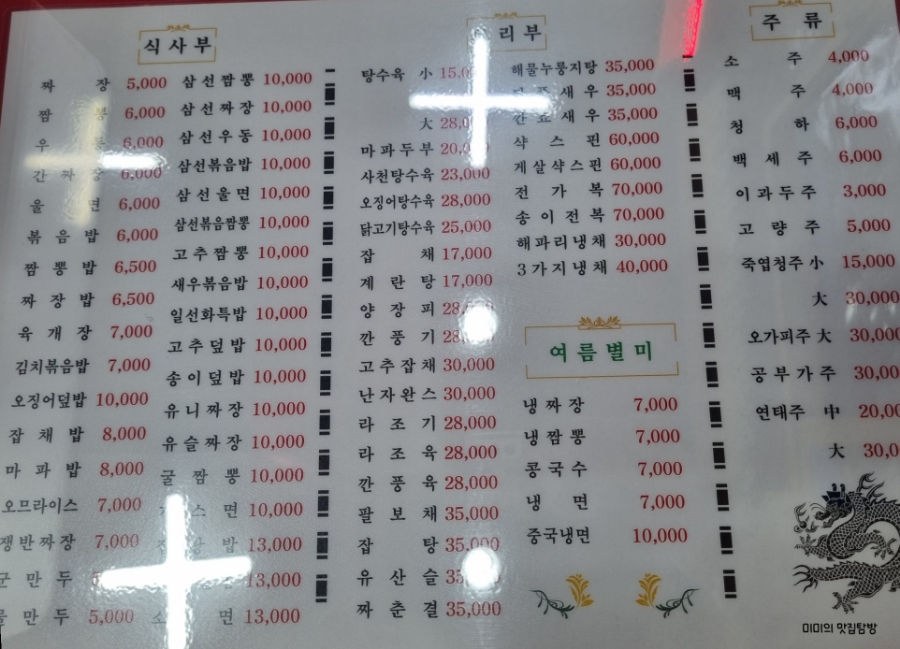 식사부
짜 장 5,000
짬 6,000
우 6,000
간짜장 6,000
울 면 6,000
볶음밥 6,000
짬뽕밥 6,500
짜장밥 6,500
육개장 7,000
김치볶음밥 7,000
오징어덮밥 10,000
잡채밥 8,000
마파밥 8,000
오므라이스 7,000
쟁반짜장 7,000
군만두
물만두 5,000
삼선짬뽕 10,000
삼선짜장 10,000
삼선우동 10,000
삼선볶음밥 10,000
삼선울면 10,000
삼선볶음짬뽕 10,000
고추짬뽕 10,000
새우볶음밥 10,000
일선화특밥 10,000
고추덮밥 10,000
송이덮밥 10,000
유니짜장 10,000
유슬짜장 10,000
굴짬뽕 10,000
스면 10,000
밥 13,000
13,000
면 13,000
리부
탕수육 小 15,0
大 28,0
마파두부 20,0
사천탕수육 23,000
오징어탕수육 28,000
닭고기탕수육 25,000
잡 채 17,000
계란탕 17,000
양장피 28,
깐풍기 28,
고추잡채 30,000
난자완스 30,000
라조기 28,000
라조육 28,000
깐풍육 28,000
팔보채 35,000
잡 탕 35,000
유산슬 35,
짜춘결 35,000
해물누룽지탕 35,000
새우 35,000
깐쇼새우 35,000
샥스핀 60,000
게살샥스핀 60,000
전가복 70,000
송이전복 70,000
해파리냉채 30,000
3가지냉채 40,000
여름별미
냉짜장 7,000
냉짬뽕 7,000
콩국수 7,000
냉 면 7,000
중국냉면 10,000
주류
소 주 4,000
맥 주 4,000
청 하 6,000
백세주 6,000
이과두주 3,000
고량주 5,000
죽엽청주 小 15,000
大 30,000
오가피주 大 30,000
공부가주 30,00
연태주 中 20,00
大 30,0
미미의 맛집탐방